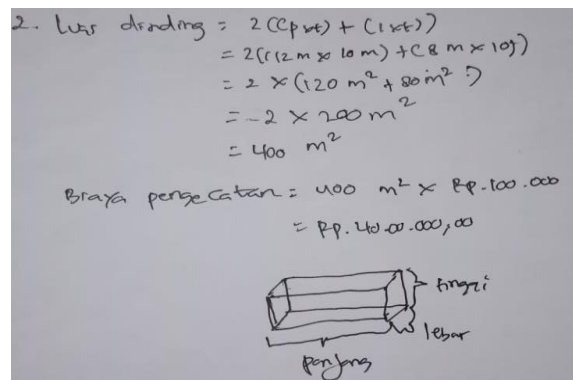 2. Luas dinding = 2((pxt) + (lxt))
= 2((12m x 10 m) + (8 m x 10))
= 2 x (120 m² + 80 m²)
= 2 x 200 m²
= 400 m²
Biaya pengecatan = 400 m² x Rp.100.000
= Rp. 40.00.000,00
tinggi
lebar
panjang